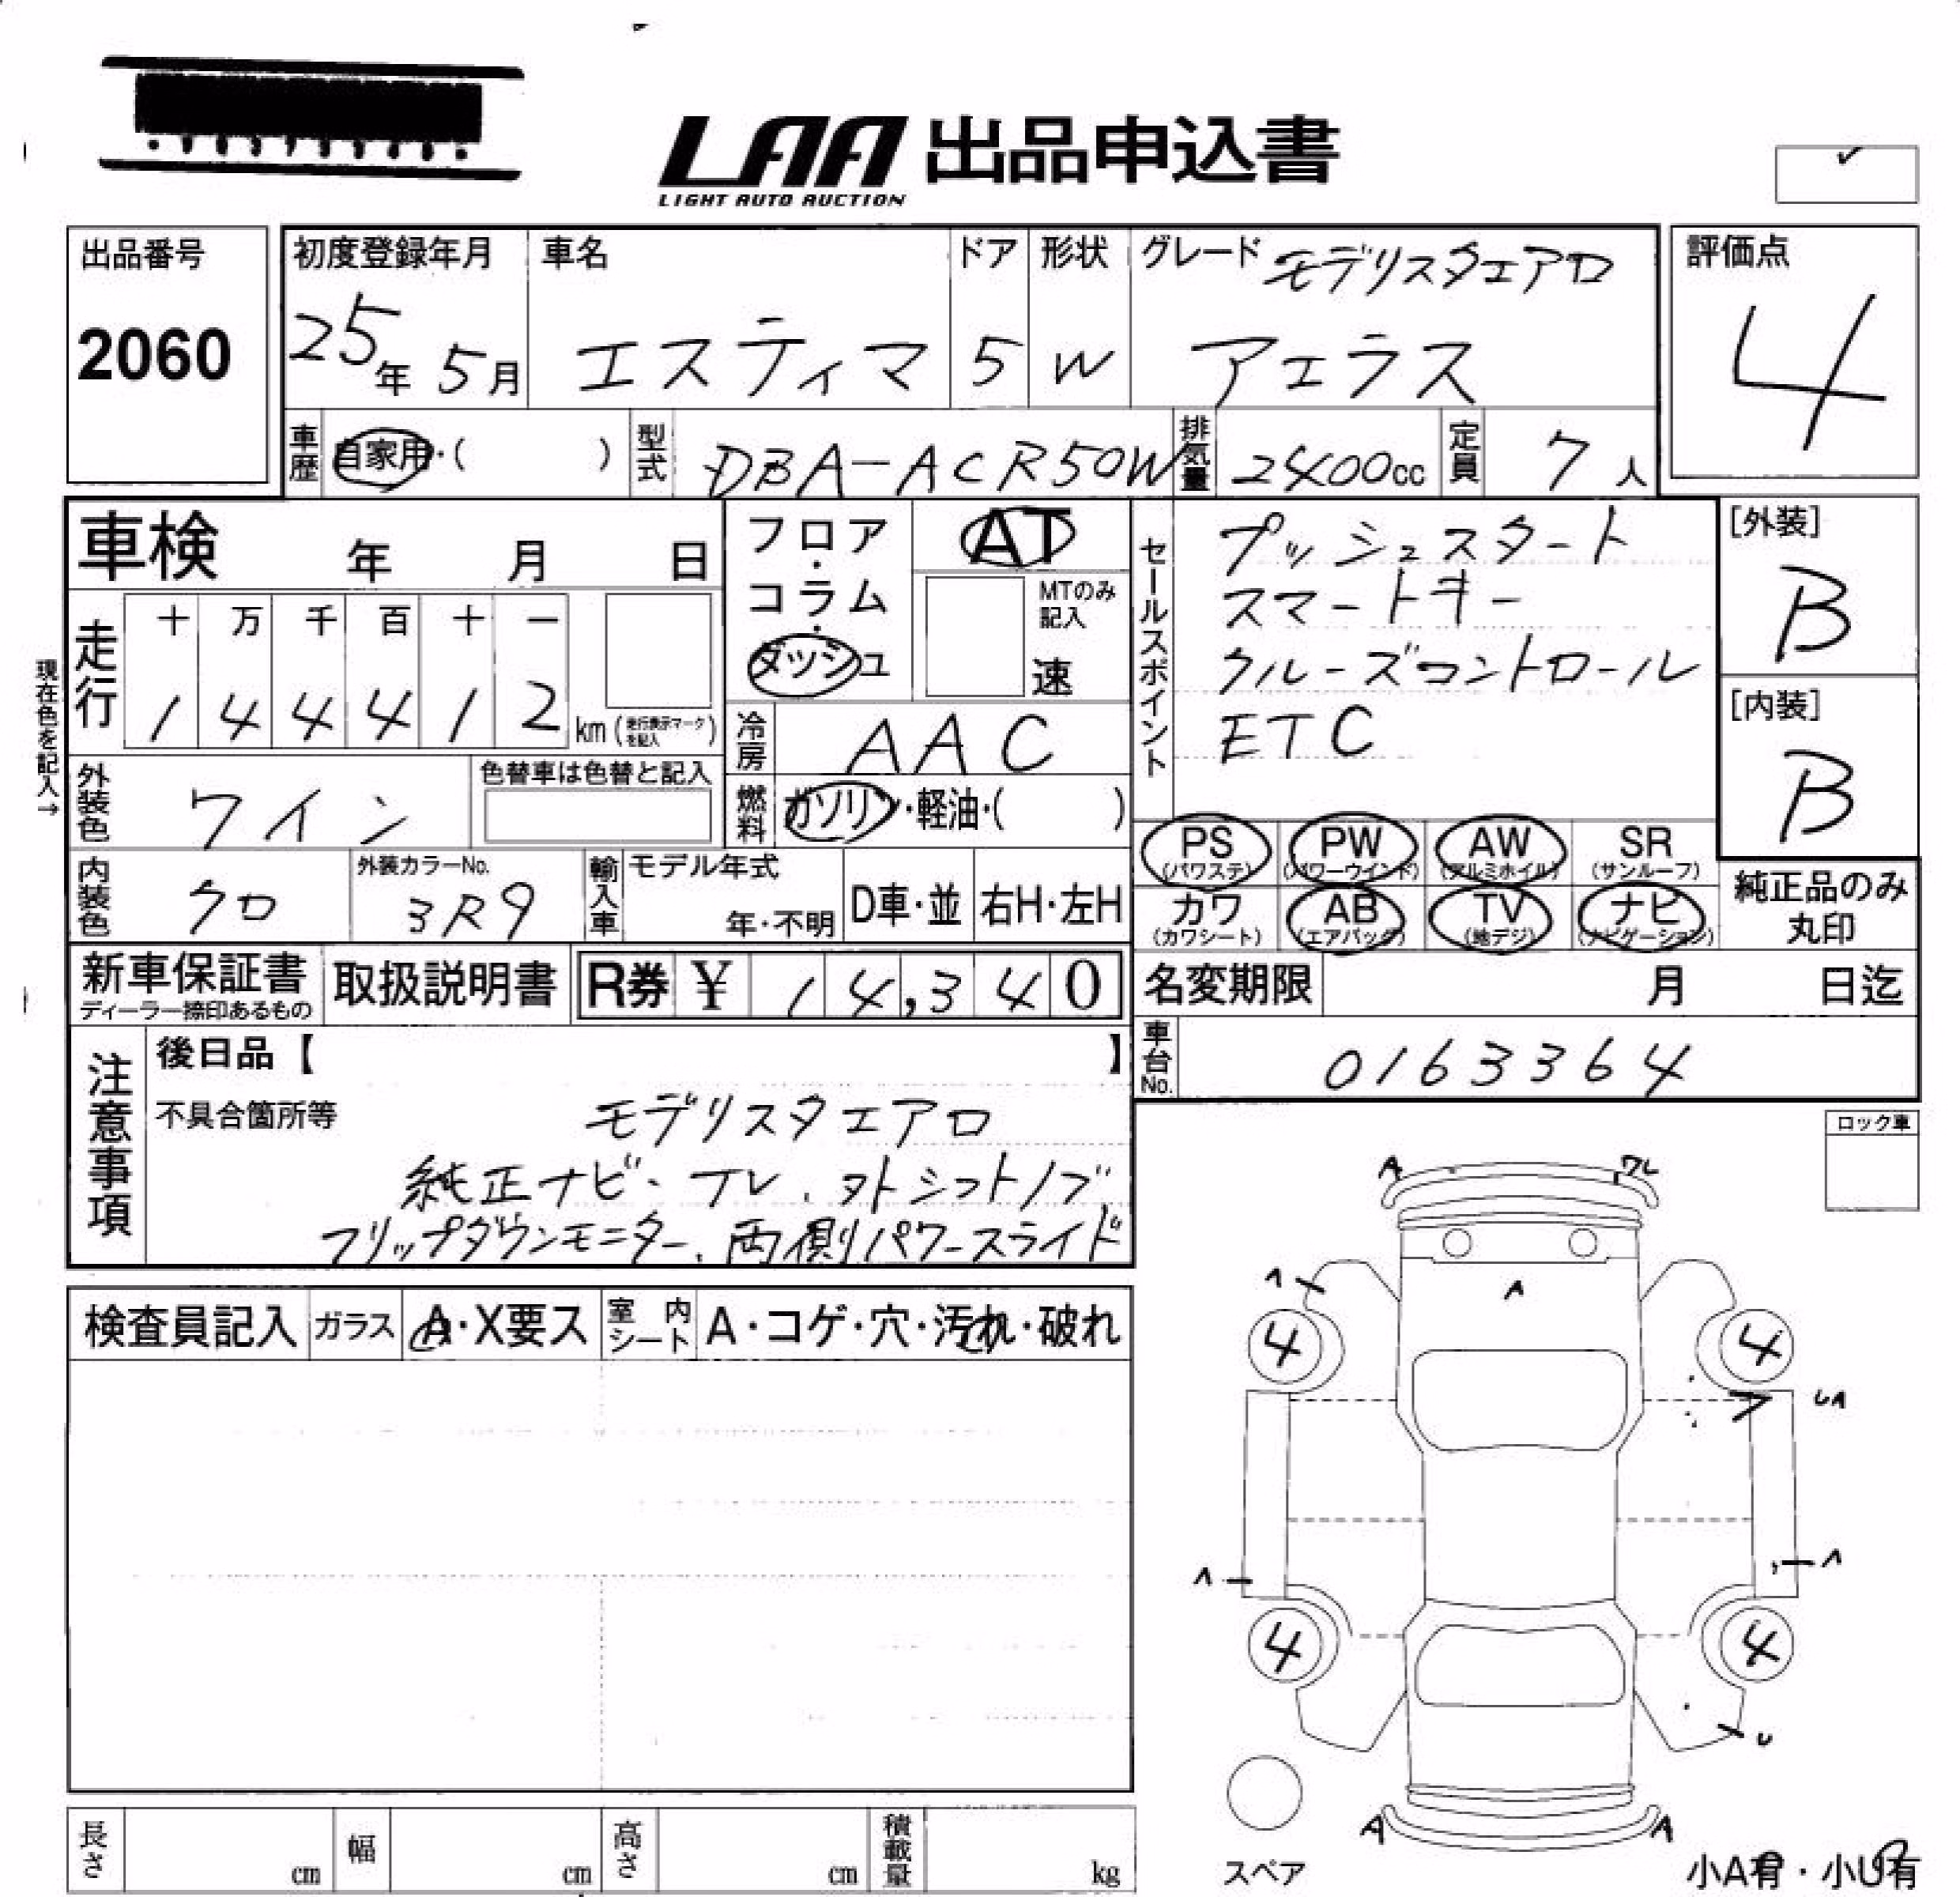 LAA 出品申込書
LIGHT AUTO AUCTION
出品番号
2060
初度登録年月
25年 5月
車名
エスティマ
ドア
5
形状
W
グレード モデリスタエアロ
アエラス
評価点
4
車歴 自家用・( )
型式 DBA-ACR50W
排気量 2400cc
定員 7人
車検 年 月 日
フロア・コラム・ダッシュ
AT
MTのみ記入
速
セールスポイント
プッシュスタート
スマートキー
クルーズコントロール
ETC
[外装]
B
[内装]
B
現在色を記入→
走行
十 万 千 百 十 一
1 4 4 4 1 2 km (走行表示マークを記入)
冷房 AAC
外装色 ワイン
色替車は色替と記入
燃料 ガソリン・軽油・( )
PS (パワステ)
PW (パワーウインド)
AW (アルミホイル)
SR (サンルーフ)
カワ (カワシート)
AB (エアバッグ)
TV (地デジ)
ナビ (ナビゲーション)
純正品のみ
丸印
内装色 クロ
外装カラーNo.
3R9
輸入車
モデル年式
年・不明
D車・並
右H・左H
新車保証書
ディーラー捺印あるもの
取扱説明書
R券 ¥ 14,340
名変期限 月 日迄
車台No. 0163364
注意事項
後日品【 】
不具合箇所等 モデリスタエアロ
純正ナビ・TV、ヌトシフトノブ
フリップダウンモニター、両側パワースライド
ロック車
検査員記入 ガラス A・X要ス 室内シート A・コゲ・穴・汚れ・破れ
A ワレ
A
A
4 4
UA
A A
4 4
U
A A
スペア
小A有・小U有
長さ cm 幅 cm 高さ cm 積載量 kg